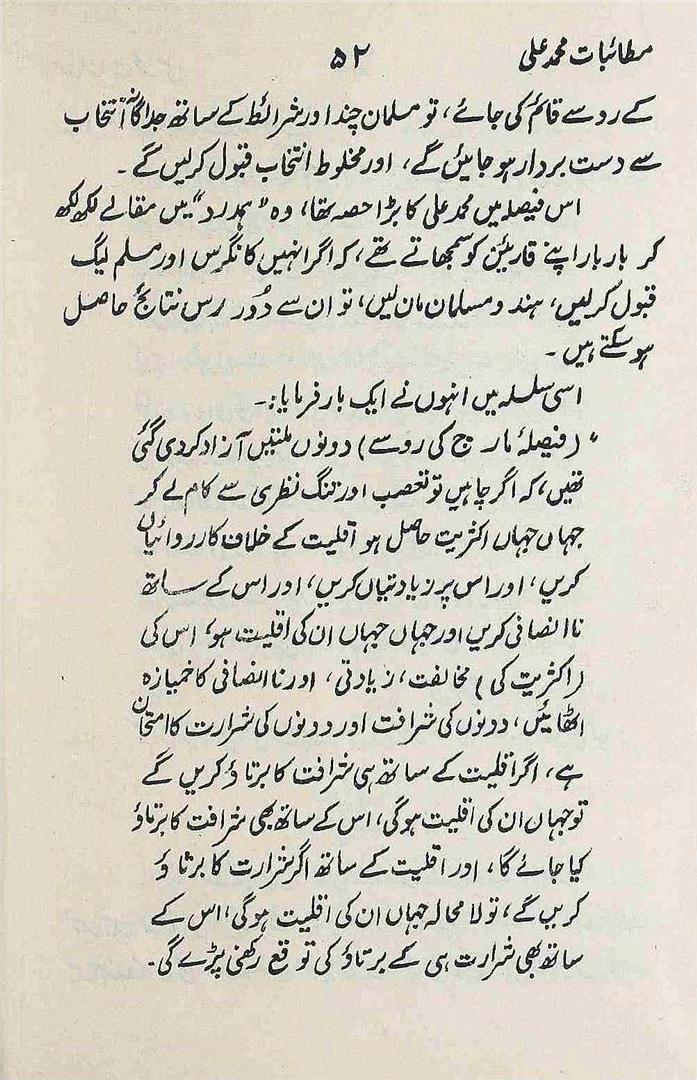 مطائبات محمد علی
۵۲
کے رو سے قائم کی جائے، تو مسلمان چند اور شرائط کے ساتھ جداگانہ انتخاب
سے دست بردار ہو جائیں گے، اور مخلوط انتخاب قبول کر لیں گے۔
اس فیصلہ میں محمد علی کا بڑا حصہ تھا، وہ "ہمدرد" میں مقالے لکھ لکھ
کر بار بار اپنے قارئین کو سمجھاتے تھے، کہ اگر انہیں کانگرس اور مسلم لیگ
قبول کر لیں، ہندو مسلمان مان لیں، تو ان سے دُور رس نتائج حاصل
ہو سکتے ہیں۔
اسی سلسلہ میں انہوں نے ایک بار فرمایا:۔
" (فیصلۂ مارچ کی رو سے) دونوں ملتیں آزاد کر دی گئی
تھیں، کہ اگر چاہیں تو تعصب اور تنگ نظری سے کام لے کر
جہاں جہاں اکثریت حاصل ہو اقلیت کے خلاف کارروائیاں
کریں، اور اس پر زیادتیاں کریں، اور اس کے ساتھ
ناانصافی کریں اور جہاں جہاں ان کی اقلیت ہو، اس کی
(اکثریت کی) مخالفت، زیادتی، اور ناانصافی کا خمیازہ
اٹھائیں، دونوں کی شرافت اور دونوں کی شرارت کا امتحان
ہے، اگر اقلیت کے ساتھ ہی شرافت کا برتاؤ کریں گے
تو جہاں ان کی اقلیت ہوگی، اس کے ساتھ بھی شرافت کا برتاؤ
کیا جائے گا، اور اقلیت کے ساتھ اگر شرارت کا برتاؤ
کریں گے، تو لا محالہ جہاں ان کی اقلیت ہوگی، اس کے
ساتھ بھی شرارت ہی کے برتاؤ کی توقع رکھنی پڑے گی۔